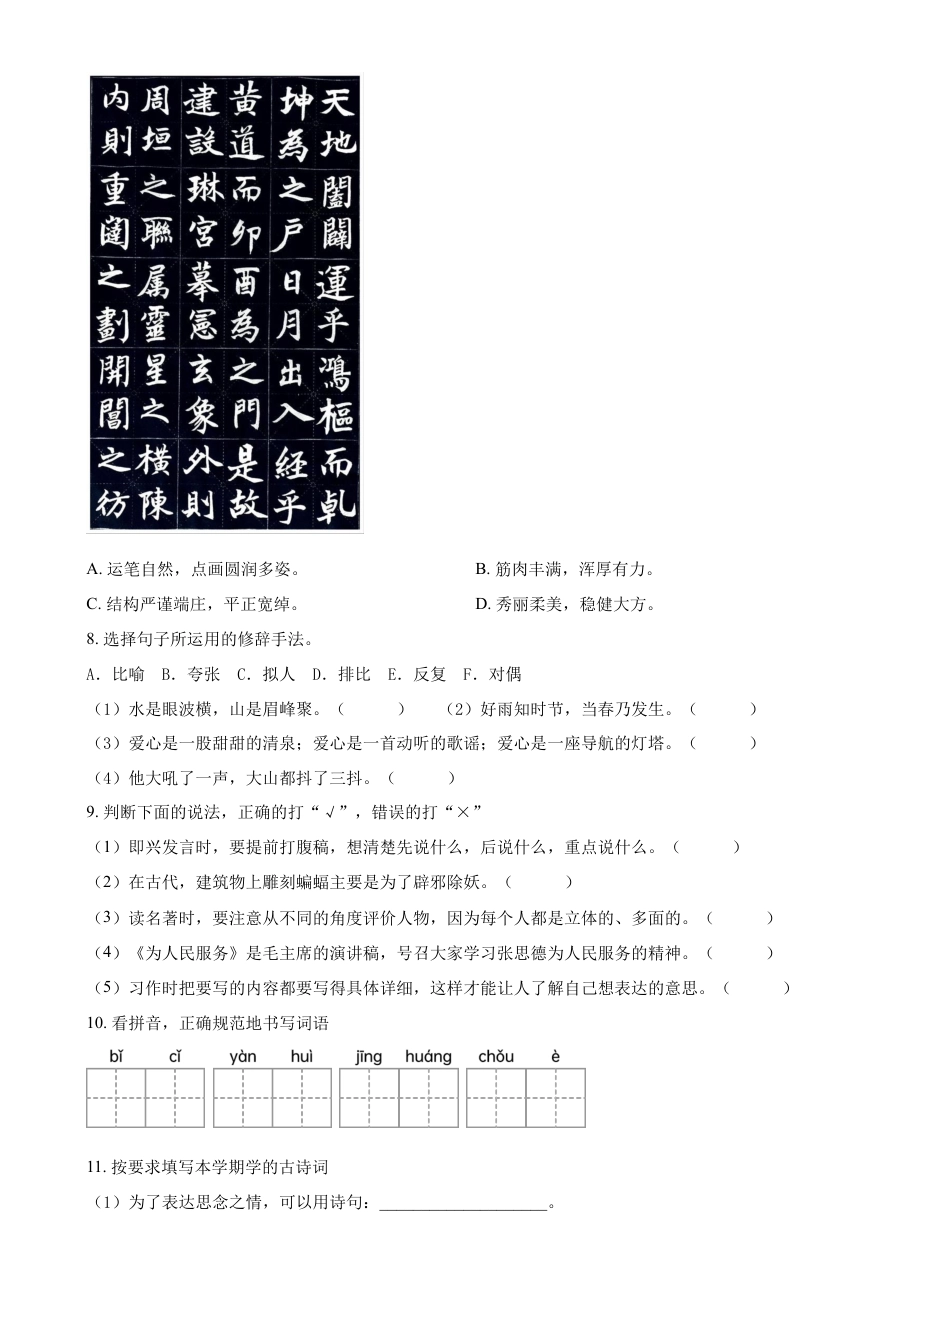 天地闔闢運乎鴻樞而乹
坤為之戶日月出入経乎
黄道而卯酉為之門是故
建設琳宮摹憲玄象外則
周垣之聯属靈星之横陳
内則重闥之劃開閶之彷
A. 运笔自然，点画圆润多姿。 B. 筋肉丰满，浑厚有力。
C. 结构严谨端庄，平正宽绰。 D. 秀丽柔美，稳健大方。
8. 选择句子所运用的修辞手法。
A．比喻 B．夸张 C．拟人 D．排比 E．反复 F．对偶
（1）水是眼波横，山是眉峰聚。（ ） （2）好雨知时节，当春乃发生。（ ）
（3）爱心是一股甜甜的清泉；爱心是一首动听的歌谣；爱心是一座导航的灯塔。（ ）
（4）他大吼了一声，大山都抖了三抖。（ ）
9. 判断下面的说法，正确的打“√”，错误的打“×”
（1）即兴发言时，要提前打腹稿，想清楚先说什么，后说什么，重点说什么。（ ）
（2）在古代，建筑物上雕刻蝙蝠主要是为了辟邪除妖。（ ）
（3）读名著时，要注意从不同的角度评价人物，因为每个人都是立体的、多面的。（ ）
（4）《为人民服务》是毛主席的演讲稿，号召大家学习张思德为人民服务的精神。（ ）
（5）习作时把要写的内容都要写得具体详细，这样才能让人了解自己想表达的意思。（ ）
10. 看拼音，正确规范地书写词语
bǐ cǐ yàn huì jīng huáng chǒu è
11. 按要求填写本学期学的古诗词
（1）为了表达思念之情，可以用诗句：____________________。